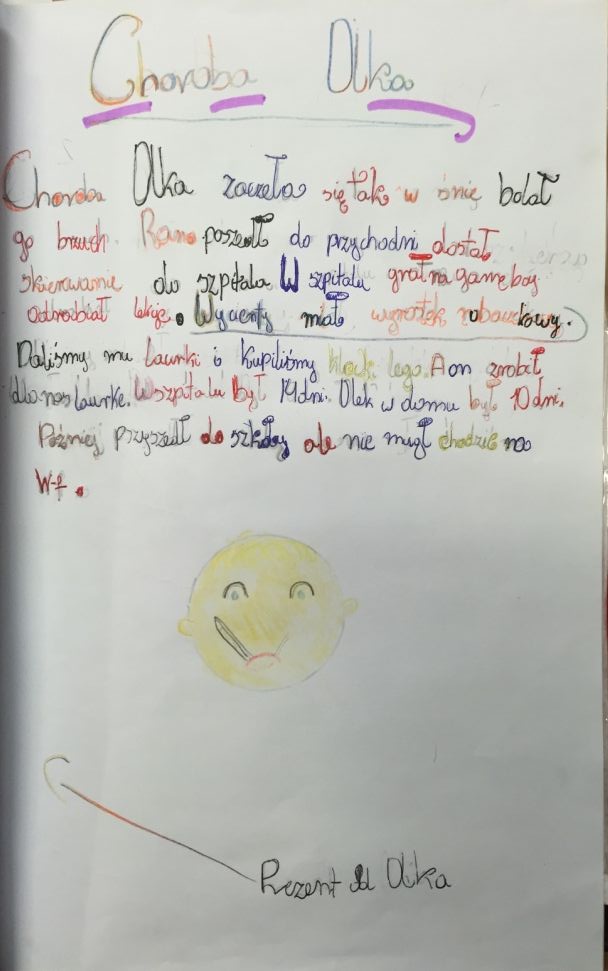 Choroba Olka
Choroba Olka zaczeła się tak w śnie bolał
go brzuch. Rano poszedł do przychodni dostał
skierowanie do szpitala W szpitalu grał na gamę boy
Odbrobiał lekcje. Wycienty miał wyrostek robaczkowy.
Daliśmy mu Laurki i Kupiliśmy klocki lego. A on zrobił
dla nas laurke. W szpitalu był 14 dni. Olek w domu był 10 dni.
Później przyszedł do szkoły ale nie mugł chodzić na
W-f.
Prezent dl Olka